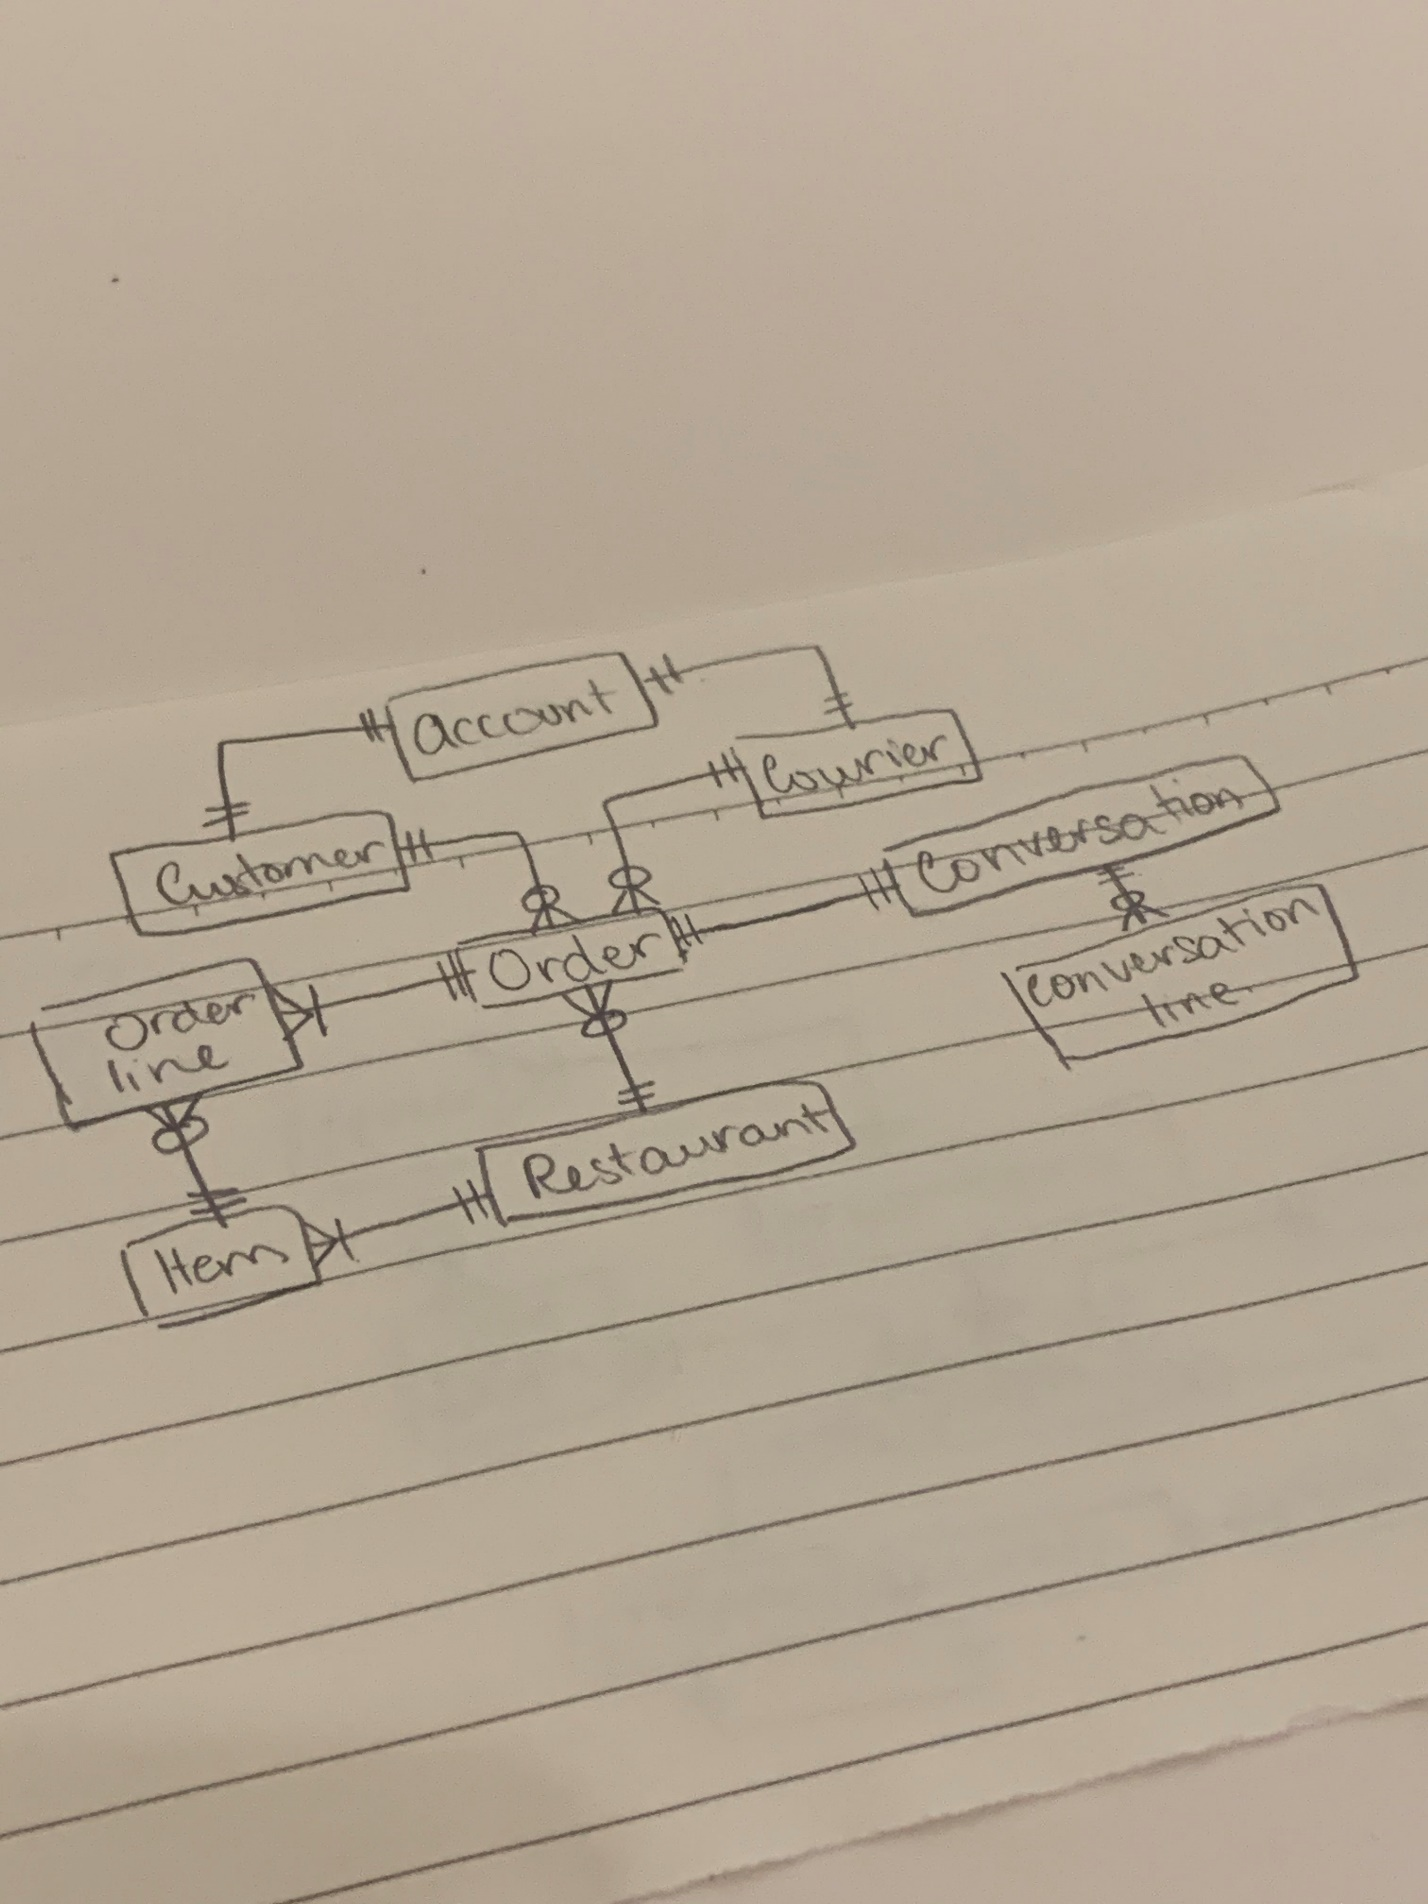 account
Courier
Customer
Conversation
Order
conversation
line.
Order
line
Restaurant
Item